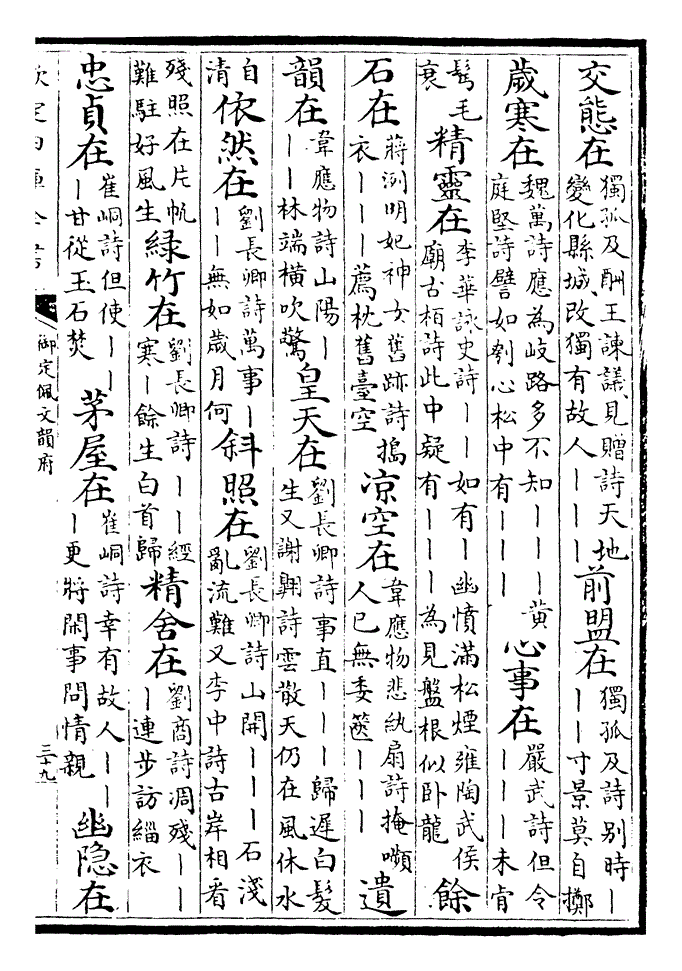 交態在獨孤及酬王諫議見贈詩天地變化縣城改獨有故人丨丨丨前盟在獨孤及詩别時丨丨丨寸景莫自擲
歲寒在魏萬詩應為岐路多不知丨丨丨黄庭堅詩譬如刳心松中有丨丨丨心事在嚴武詩但令丨丨丨未肯
髩毛衰精靈在李華詠史詩丨丨如有丨幽憤滿松煙雍陶武侯廟古栢詩此中疑有丨丨丨為見盤根似卧龍餘
石在蔣洌明妃神女舊跡詩搗衣丨丨丨薦枕舊臺空凉空在韋應物悲紈扇詩掩嚬人已無委篋丨丨丨遺
韻在韋應物詩山陽丨丨丨林端橫吹驚皇天在劉長卿詩事直丨丨丨歸遲白髮生又謝翺詩雲散天仍在風休水
自清依然在劉長卿詩萬事丨丨丨無如歲月何斜照在劉長卿詩山開丨丨丨石淺亂流難又李中詩古岸相看
殘照在片帆難駐好風生緑竹在劉長卿詩丨丨經寒丨餘生白首歸精舍在劉商詩凋殘丨丨丨連步訪緇衣
忠貞在崔峒詩但使丨丨丨甘從玉石焚茅屋在崔峒詩幸有故人丨丨丨更將閑事問情親幽隐在
欽定四庫全書
御定佩文韻府
三十九